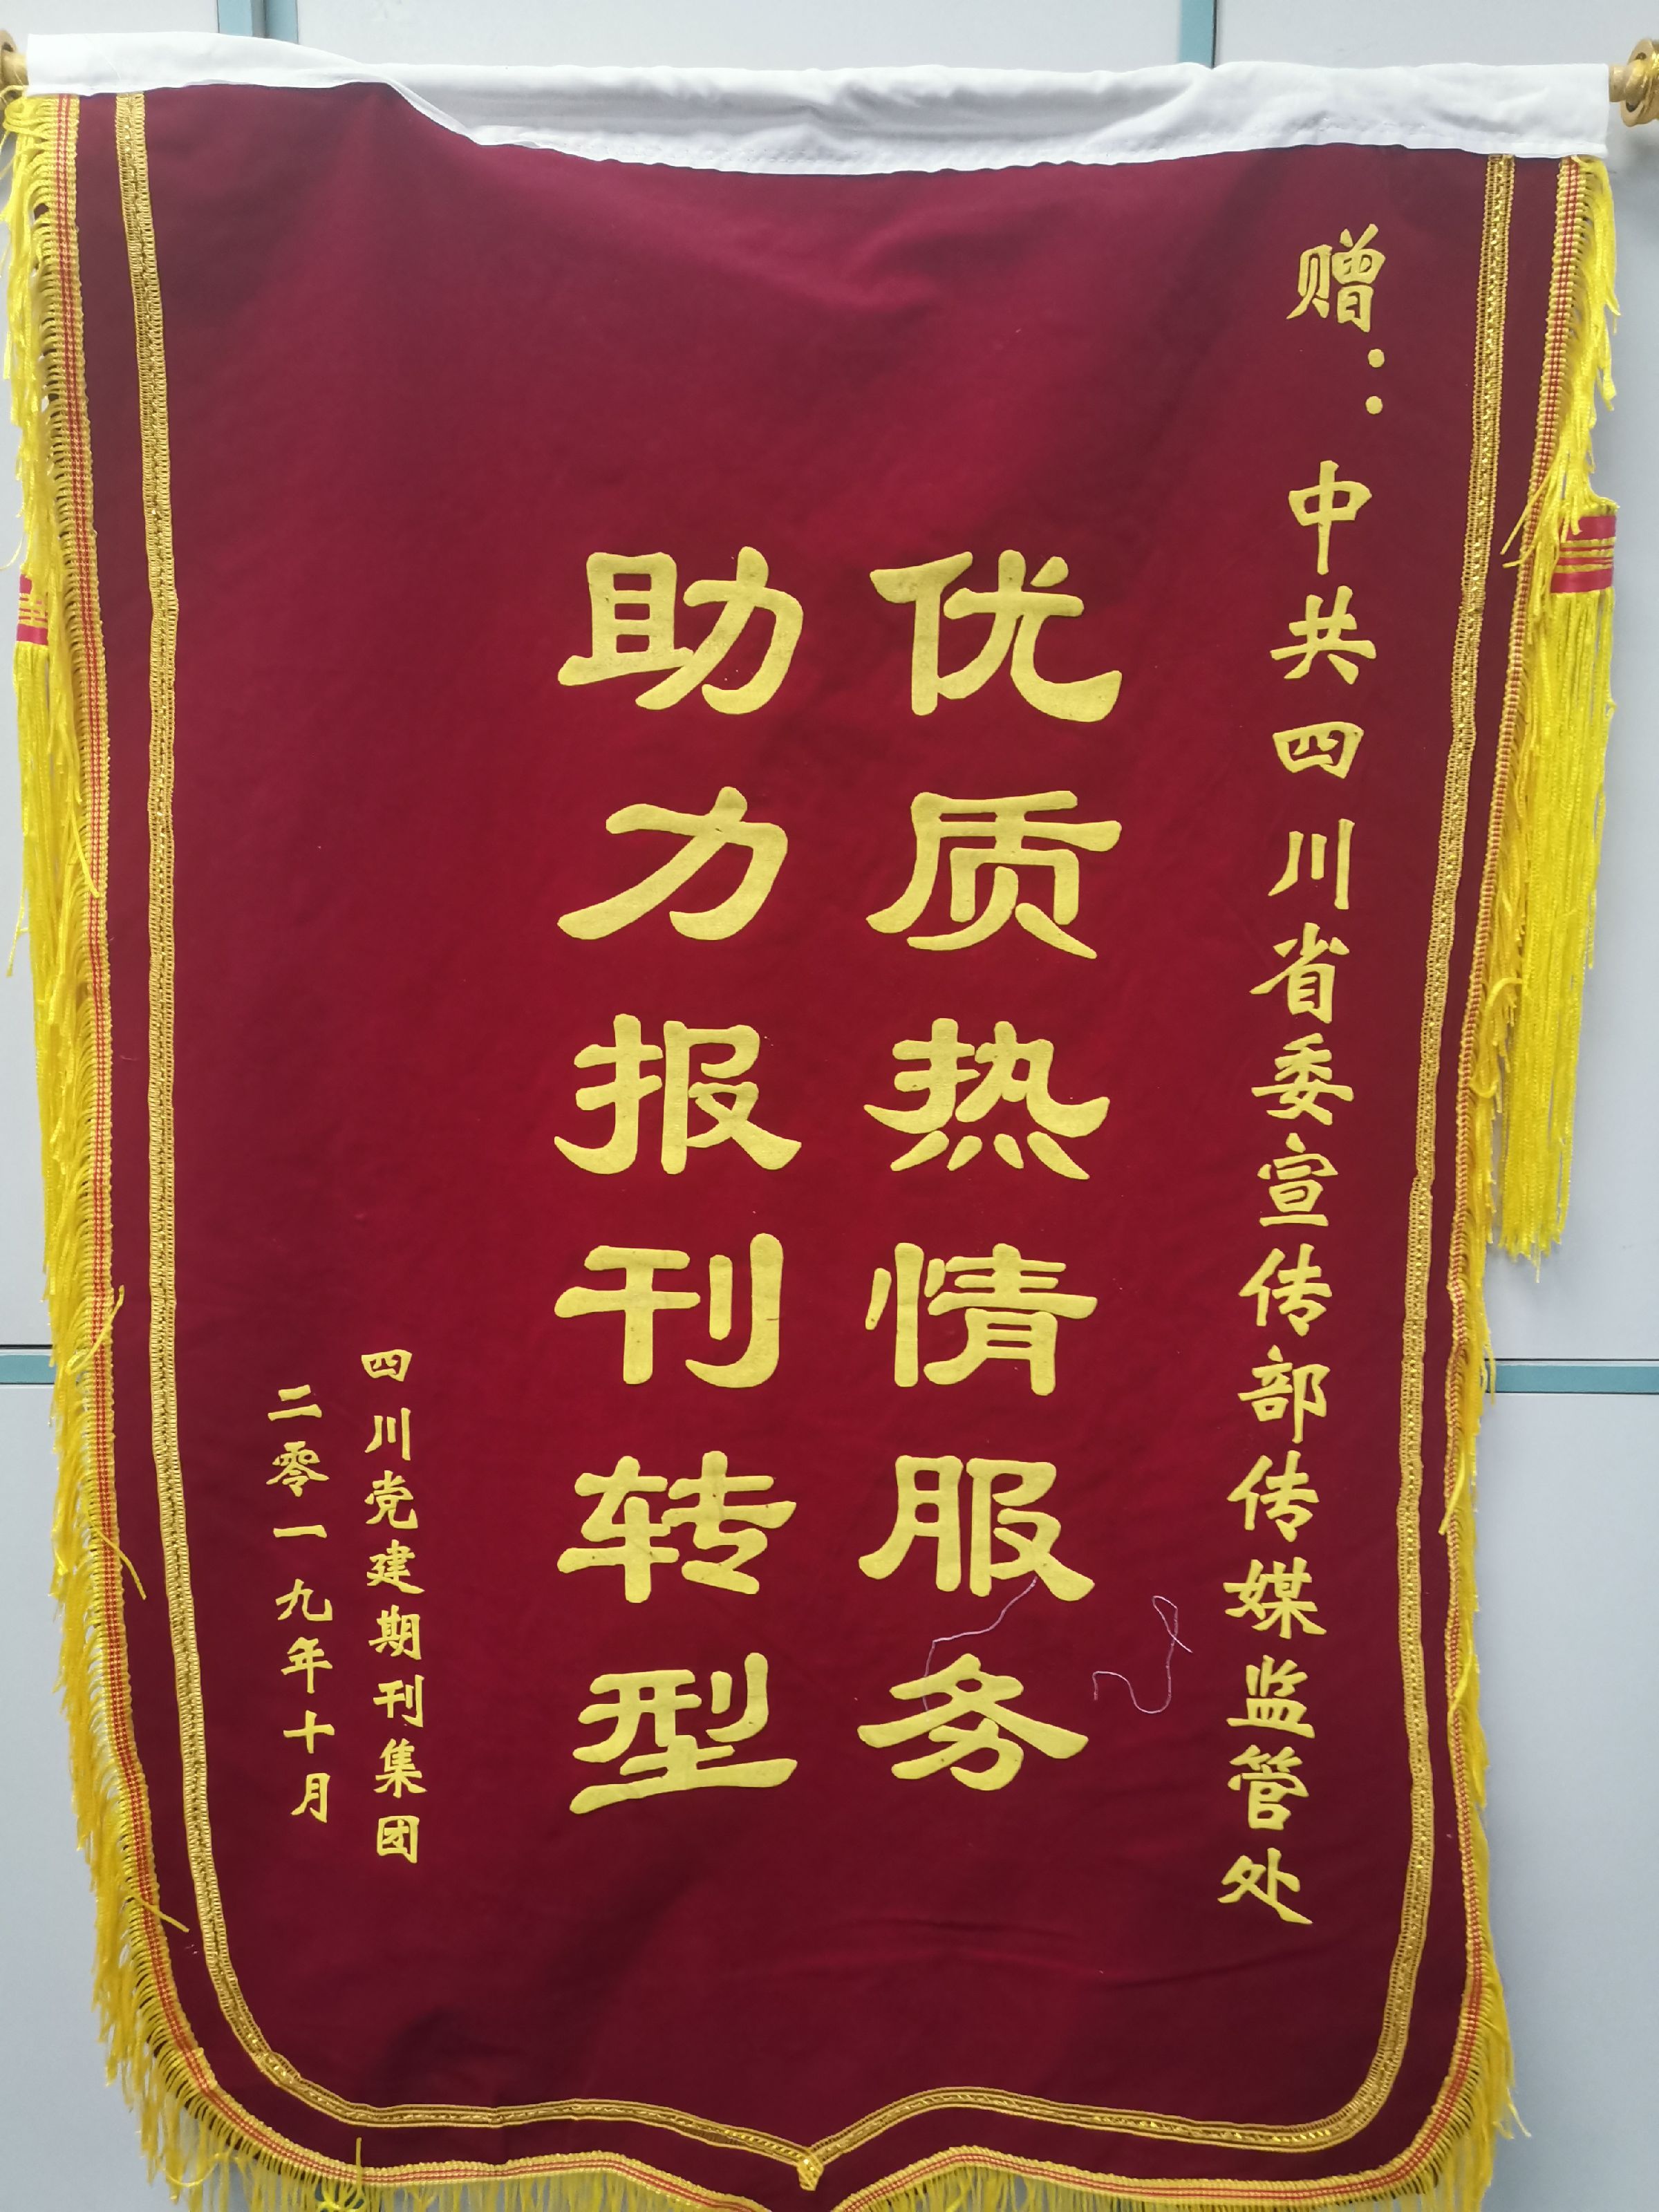 赠：中共四川省委宣传部传媒监管处
优质热情服务
助力报刊转型
四川党建期刊集团
二零一九年十月